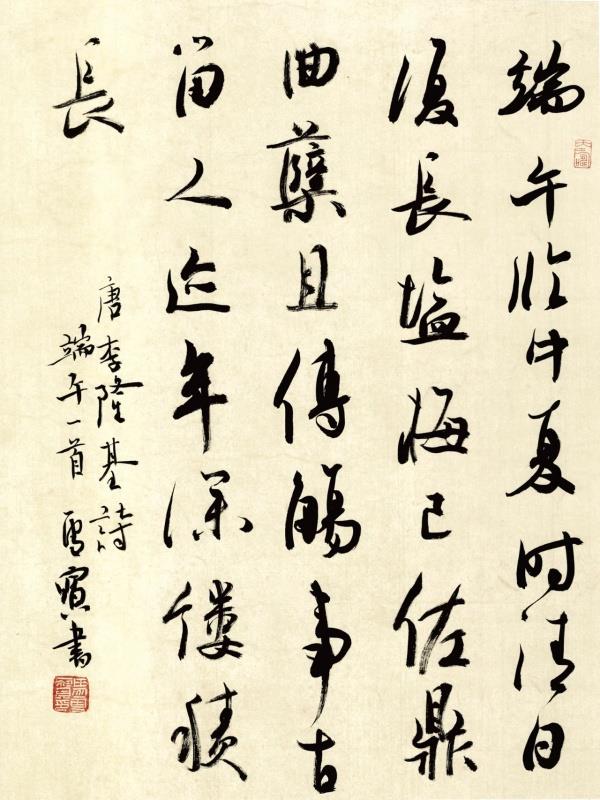 端午临中夏时清日
復長塩梅已佐鼎
曲蘖且傳觴事古
留人迹年深縷積
長
唐李隆基詩
端午一首 書